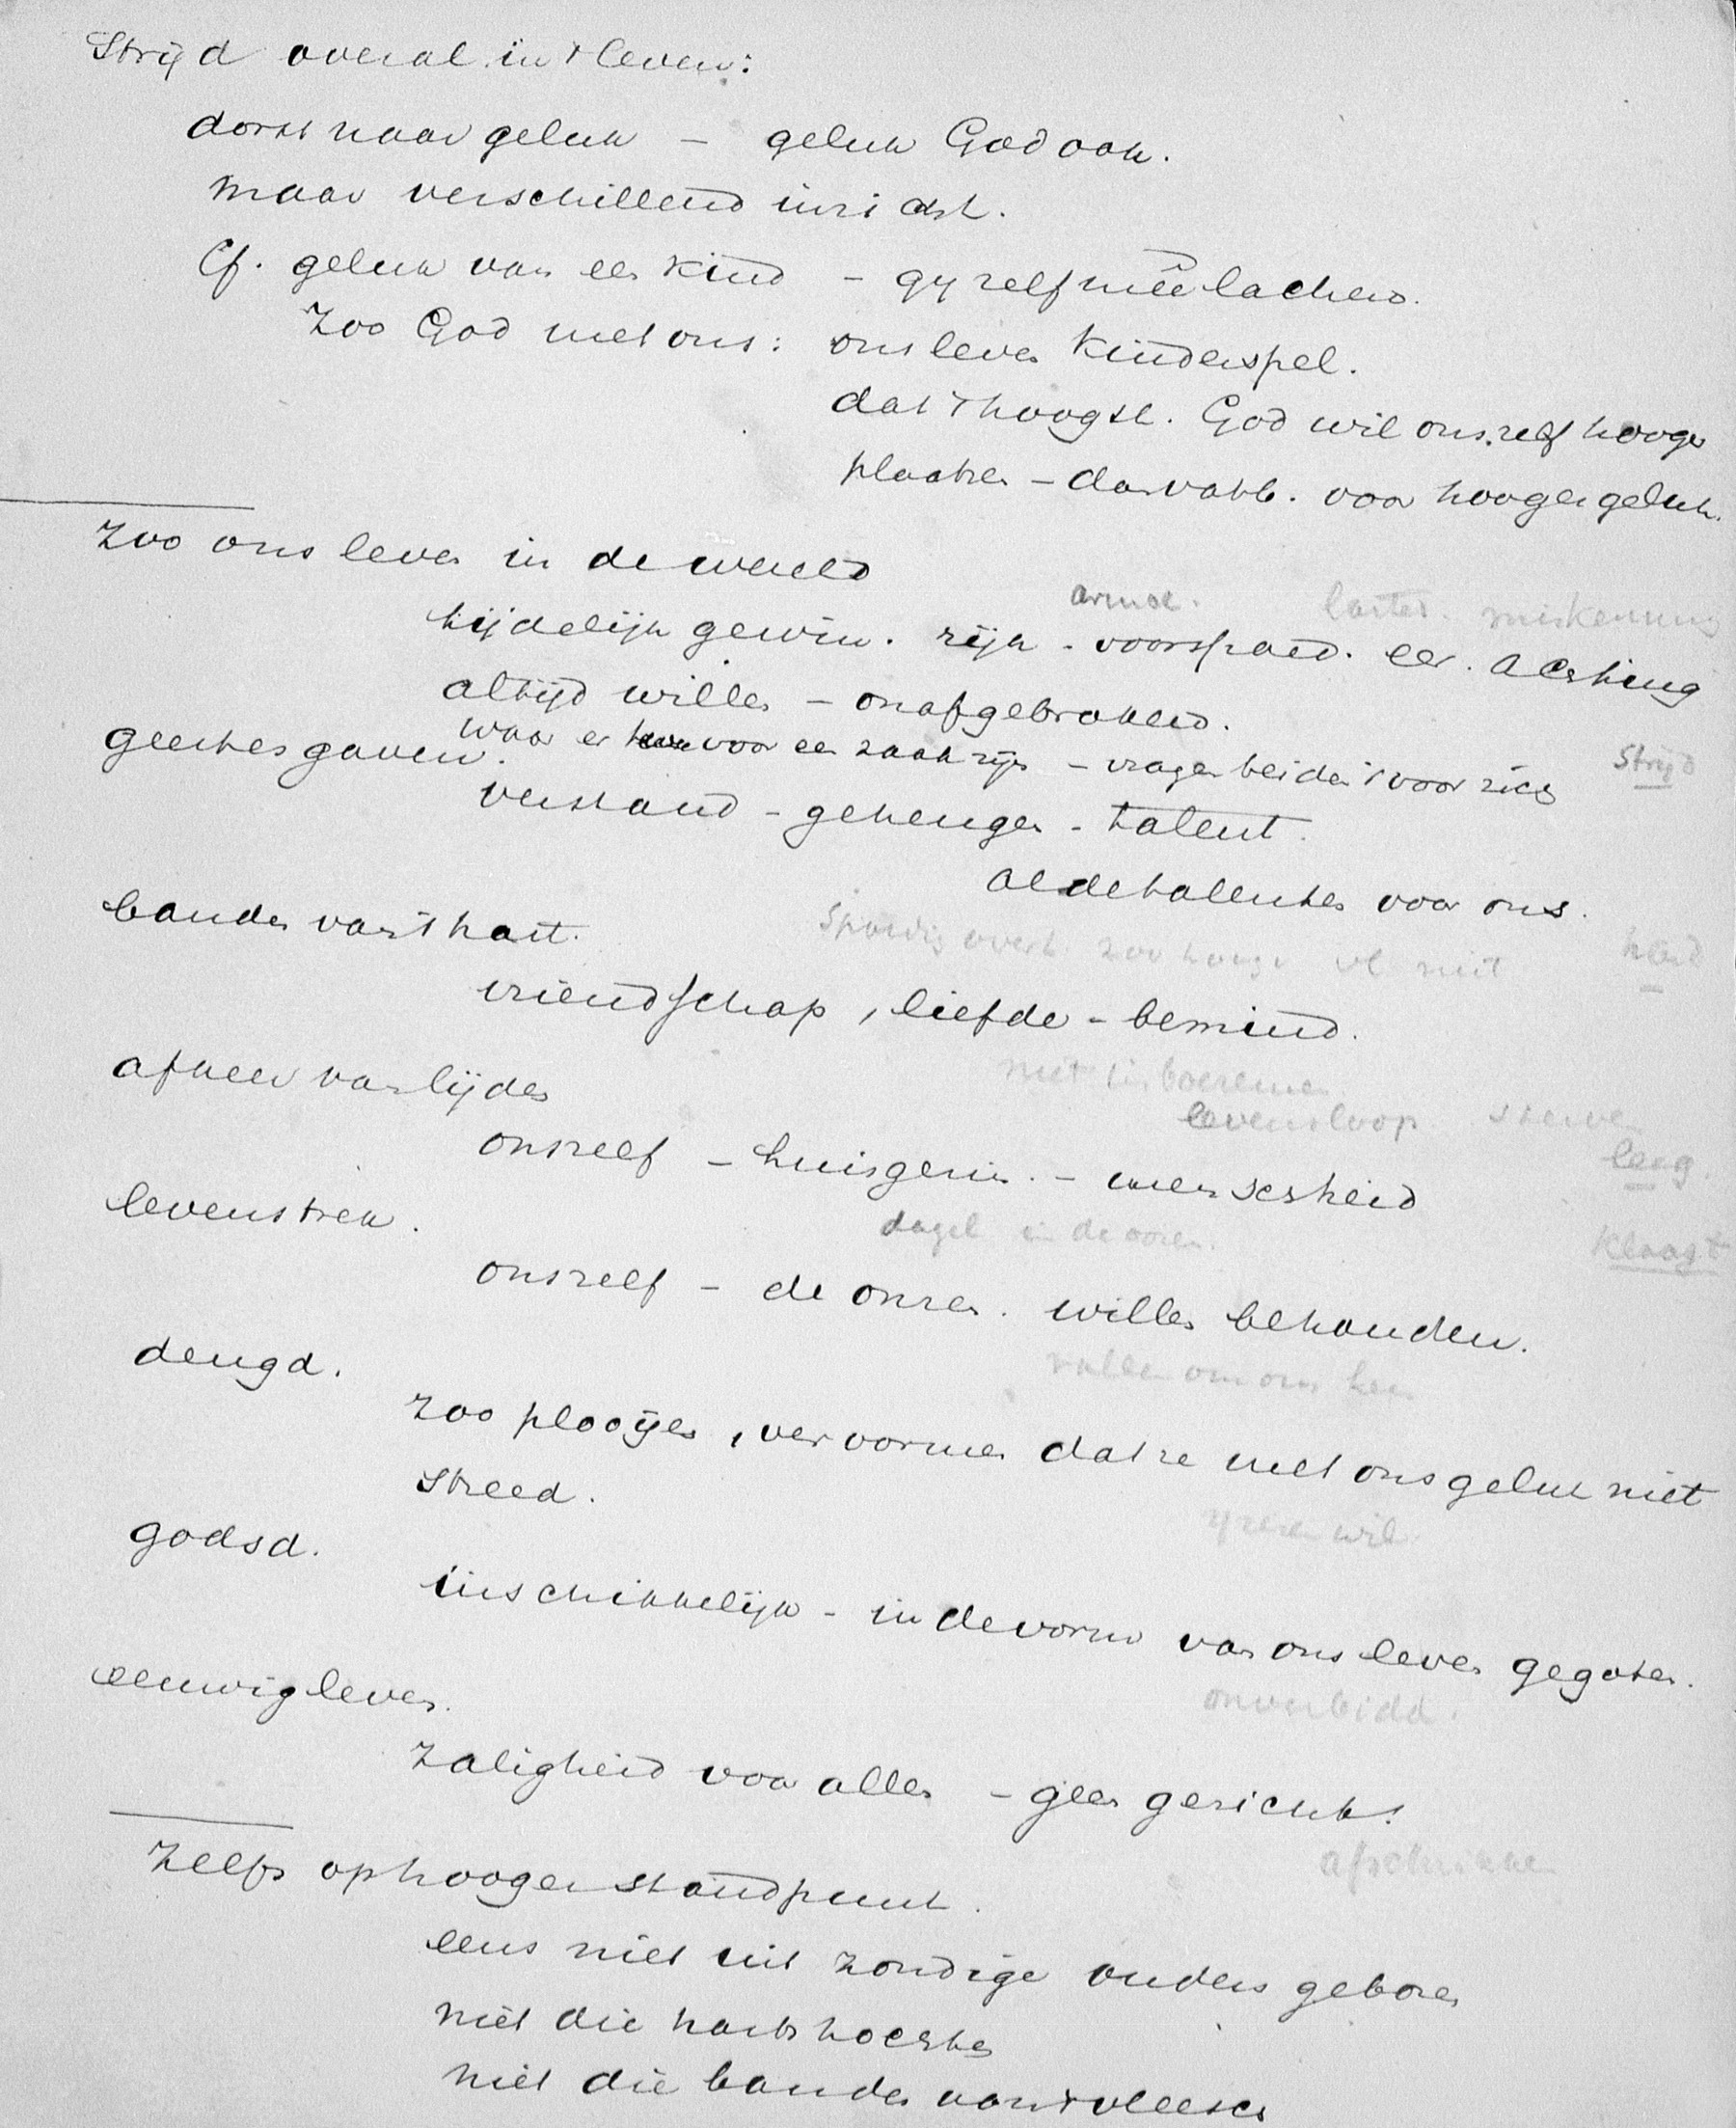 Strijd overal in 't leven:
dorst naar geluk – geluk God ook.
maar verschillend inzicht.
Cf. geluk van een kind – gij zelf meê lachend.
Zoo God met ons: ons leven Kinderspel.
dat 't hoogst. God wil onszelf hooger
plaatsen – da vatb. voor hooger geluk.
Zoo ons leven in de wereld
armoe. laster. miskenning
tijdelijk gewin. rijk. voorspoed. eer. achting
altijd willen – onafgebroken.
waar er voor een zaak zijn – vragen beiden 't voor zich
Strijd
geestesgaven.
verstand – geheugen – talent.
al de talenten voor ons.
banden van 't hart.
Spoedig overh. zoo hoog niet
vriendschap, liefde – bemind.
niet in boezemen
afkeer van lijden
levensloop.
leeg.
onszelf – huisgezin. – menschheid
levenstrek.
dagel in de ooren.
klaagt
onszelf – de onzen. willen behouden.
deugd.
vallen om ons heen
Zoo plooijen, vervormen dat ze met ons geluk niet
streed.
ijzeren wil.
godsd.
inschikkelijk – in de vorm van ons leven gegoten.
onverbidd.
eeuwig leven.
Zaligheid voor allen – geen gericht!
afschrikken
Zelfs op hooger standpunt.
eens niet uit zondige ouders geboren
niet die hartstochten
niet die banden van 't vleesch